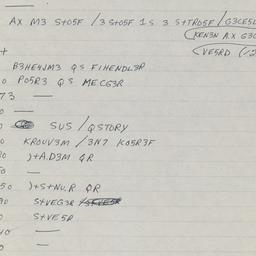 AX M3 S+O5F /3 S+O5F 1S 3 S++RO5F / G3CE5L
(KEN3N A.X G3O
+ (VE5RD (12
B3HE4JM3 QS FIHENDL3R
0 PO5R3 QS MECG3R
73 —
0 —
SUS / QSTORY
0 KROUV3M / 3N7 KO5R3F
)+A.D3M QR
50 —
50 )+S+NU.R QR
90 S+VEG3R
0 S+VE5R
40 —
0 —